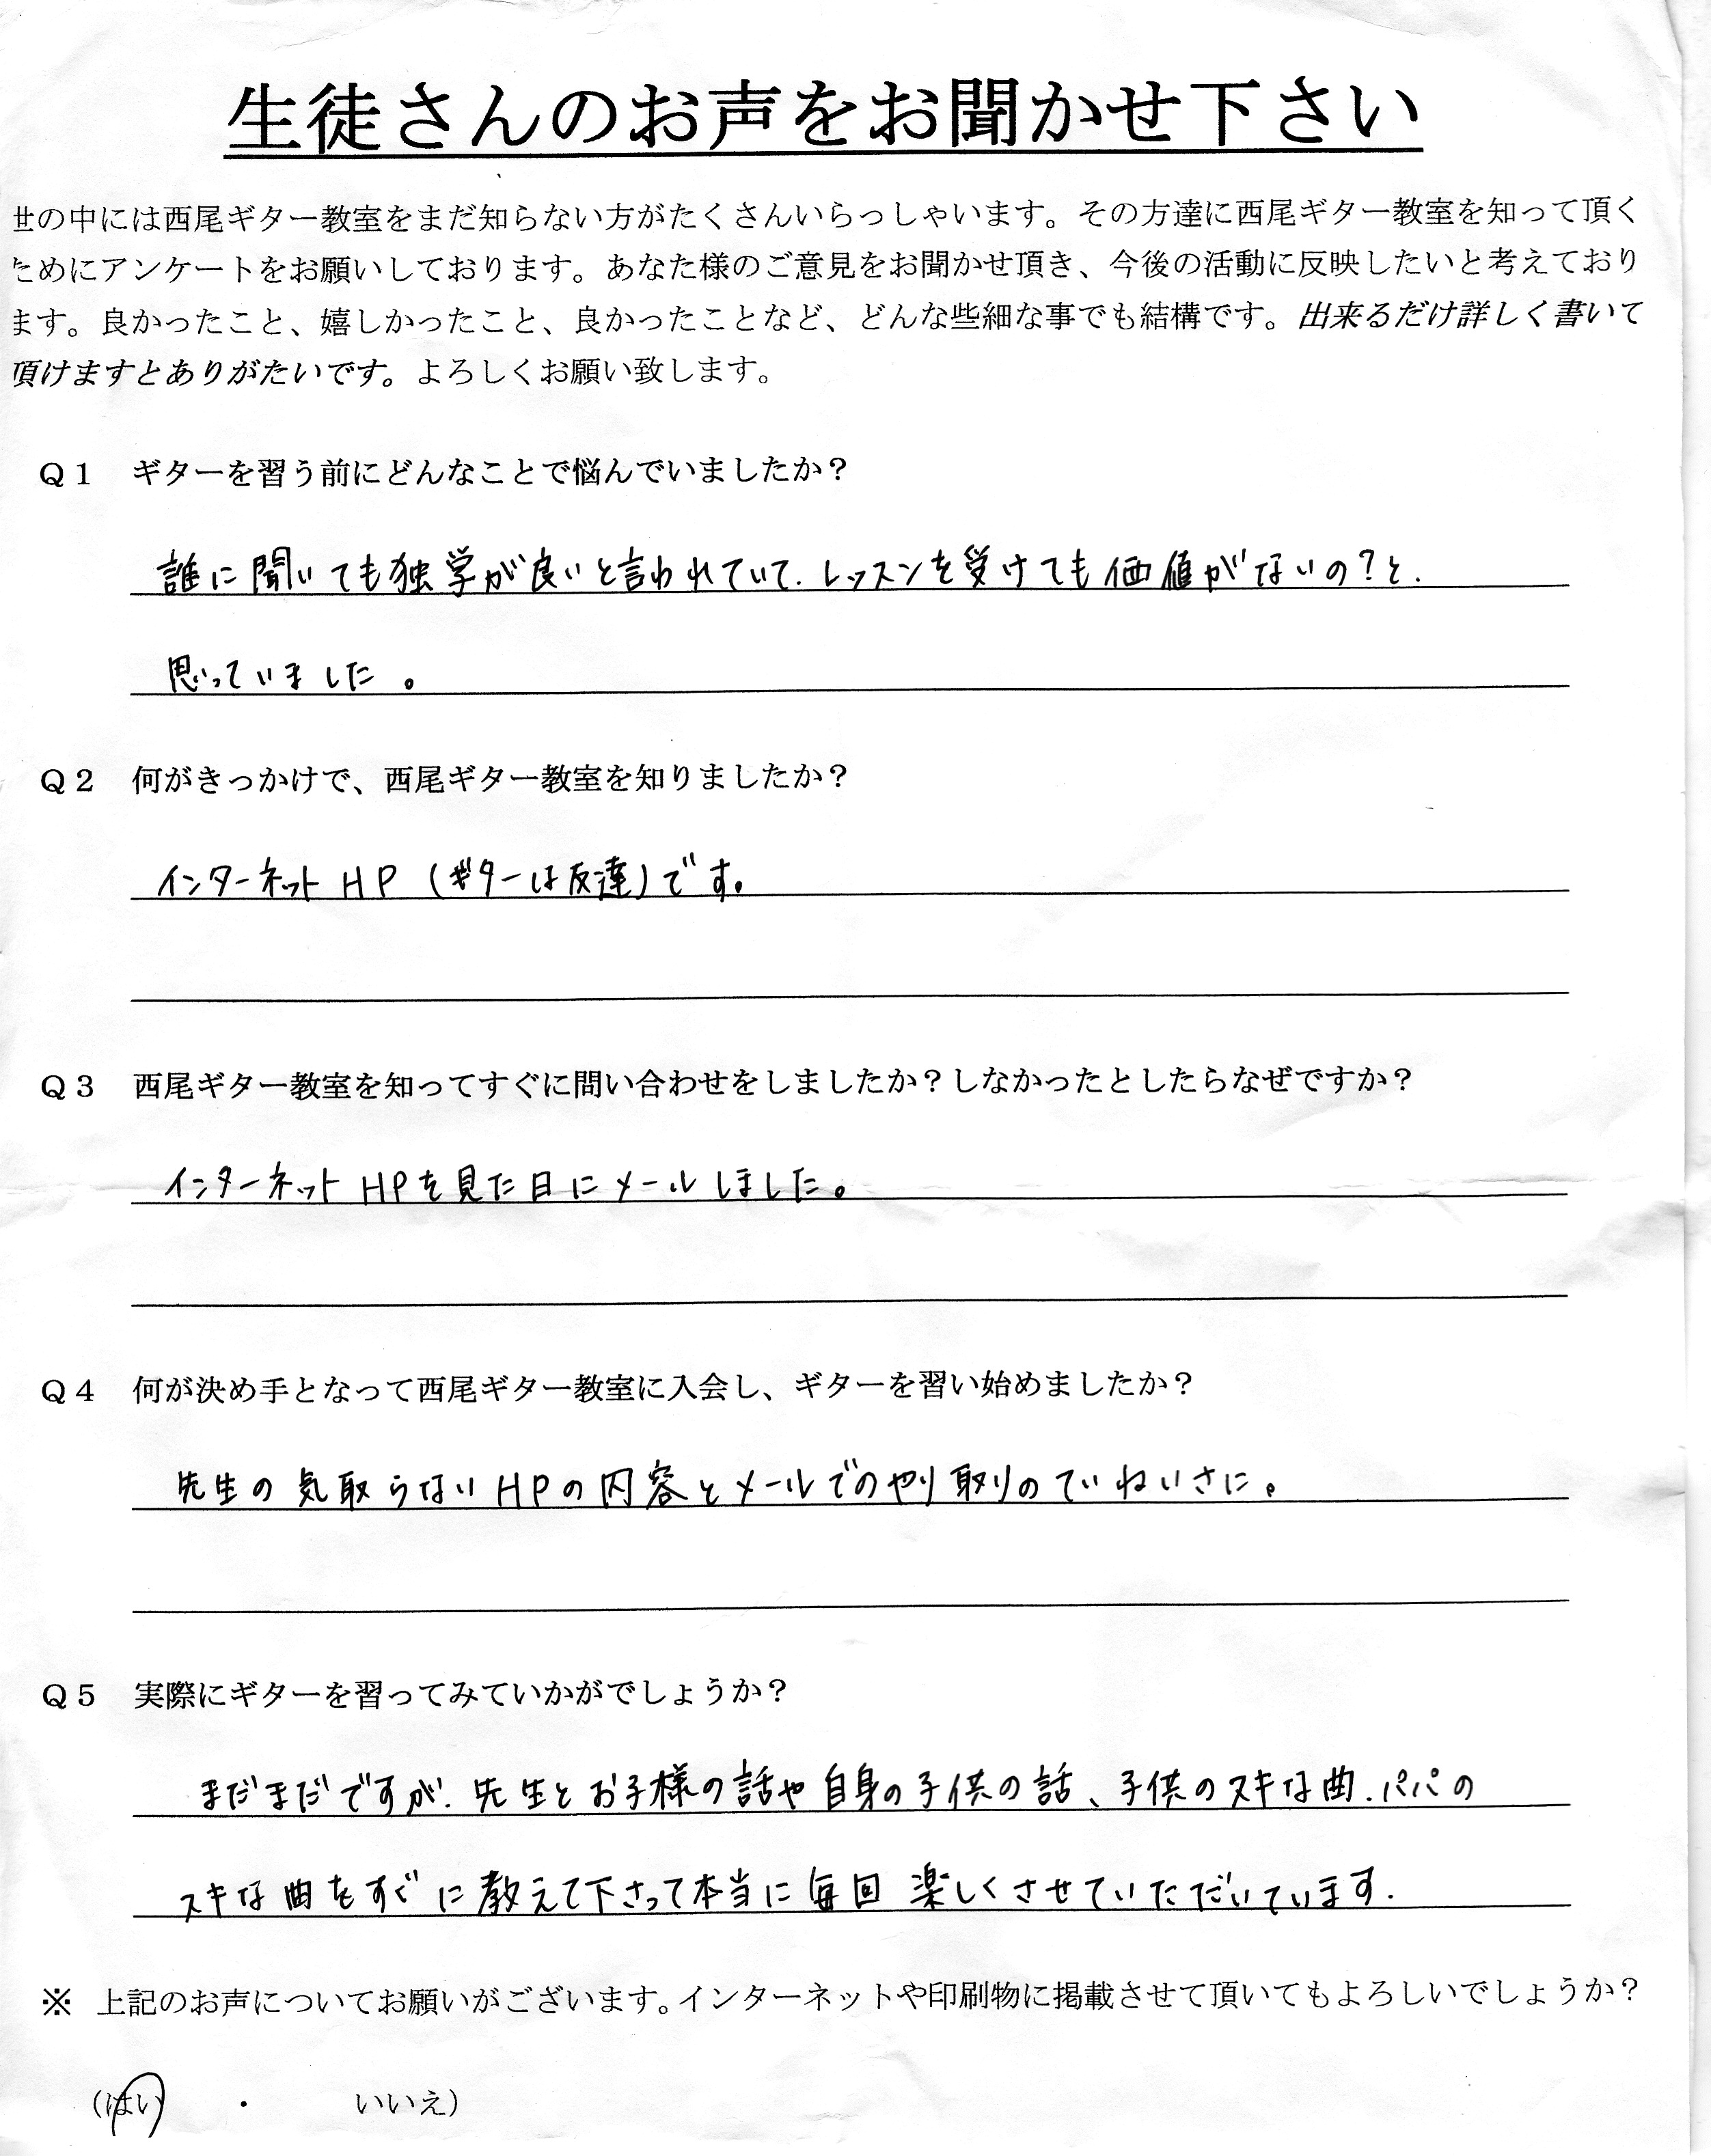 生徒さんのお声をお聞かせ下さい
世の中には西尾ギター教室をまだ知らない方がたくさんいらっしゃいます。その方達に西尾ギター教室を知って頂く
ためにアンケートをお願いしております。あなた様のご意見をお聞かせ頂き、今後の活動に反映したいと考えており
ます。良かったこと、嬉しかったこと、良かったことなど、どんな些細な事でも結構です。出来るだけ詳しく書いて
頂けますとありがたいです。よろしくお願い致します。
Q1 ギターを習う前にどんなことで悩んでいましたか？
誰に聞いても独学が良いと言われていて、レッスンを受けても価値がないの？と、
思っていました。
Q2 何がきっかけで、西尾ギター教室を知りましたか？
インターネットHP（ギターは友達）です。
Q3 西尾ギター教室を知ってすぐに問い合わせをしましたか？しなかったとしたらなぜですか？
インターネットHPを見た日にメールしました。
Q4 何が決め手となって西尾ギター教室に入会し、ギターを習い始めましたか？
先生の気取らないHPの内容とメールでのやり取りのていねいさに。
Q5 実際にギターを習ってみていかがでしょうか？
まだまだですが、先生とお子様の話や自身の子供の話、子供のスキな曲、パパの
スキな曲をすぐに教えて下さって本当に毎回楽しくさせていただいています.
※ 上記のお声についてお願いがございます。インターネットや印刷物に掲載させて頂いてもよろしいでしょうか？
（はい ・ いいえ）